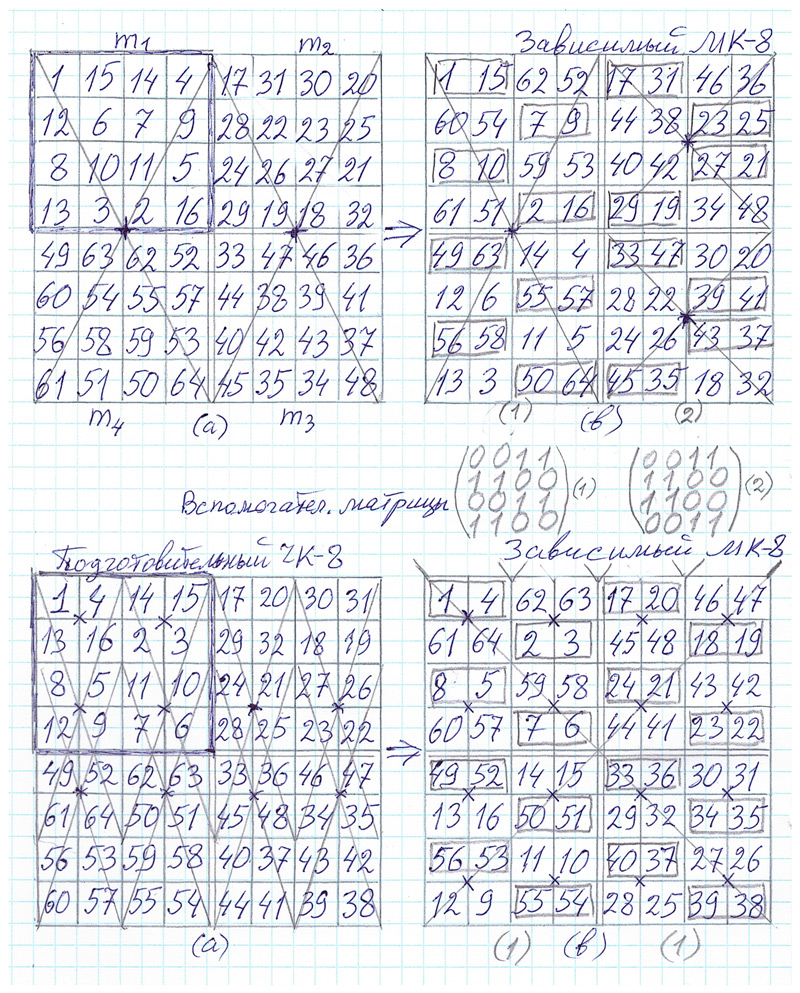 m1 m2
1 15 14 4 17 31 30 20
12 6 7 9 28 22 23 25
8 10 11 5 24 26 27 21
13 3 2 16 29 19 18 32
49 63 62 52 33 47 46 36
60 54 55 57 44 38 39 41
56 58 59 53 40 42 43 37
61 51 50 64 45 35 34 48
m4 (а) m3
Зависимый МК-8
1 15 62 52 17 31 46 36
60 54 7 9 44 38 23 25
8 10 59 53 40 42 27 21
61 51 2 16 29 19 34 48
49 63 14 4 33 47 30 20
12 6 55 57 28 22 39 41
56 58 11 5 24 26 43 37
13 3 50 64 45 35 18 32
(1) (в) (2)
Вспомогател. матрицы
0011
1100
0011
1100
(1)
0011
1100
1100
0011
(2)
Подготовительный ЧК-8
1 4 14 15 17 20 30 31
13 16 2 3 29 32 18 19
8 5 11 10 24 21 27 26
12 9 7 6 28 25 23 22
49 52 62 63 33 36 46 47
61 64 50 51 45 48 34 35
56 53 59 58 40 37 43 42
60 57 55 54 44 41 39 38
(а)
Зависимый МК-8
1 4 62 63 17 20 46 47
61 64 2 3 45 48 18 19
8 5 59 58 24 21 43 42
60 57 7 6 44 41 23 22
49 52 14 15 33 36 30 31
13 16 50 51 29 32 34 35
56 53 11 10 40 37 27 26
12 9 55 54 28 25 39 38
(1) (в) (1)